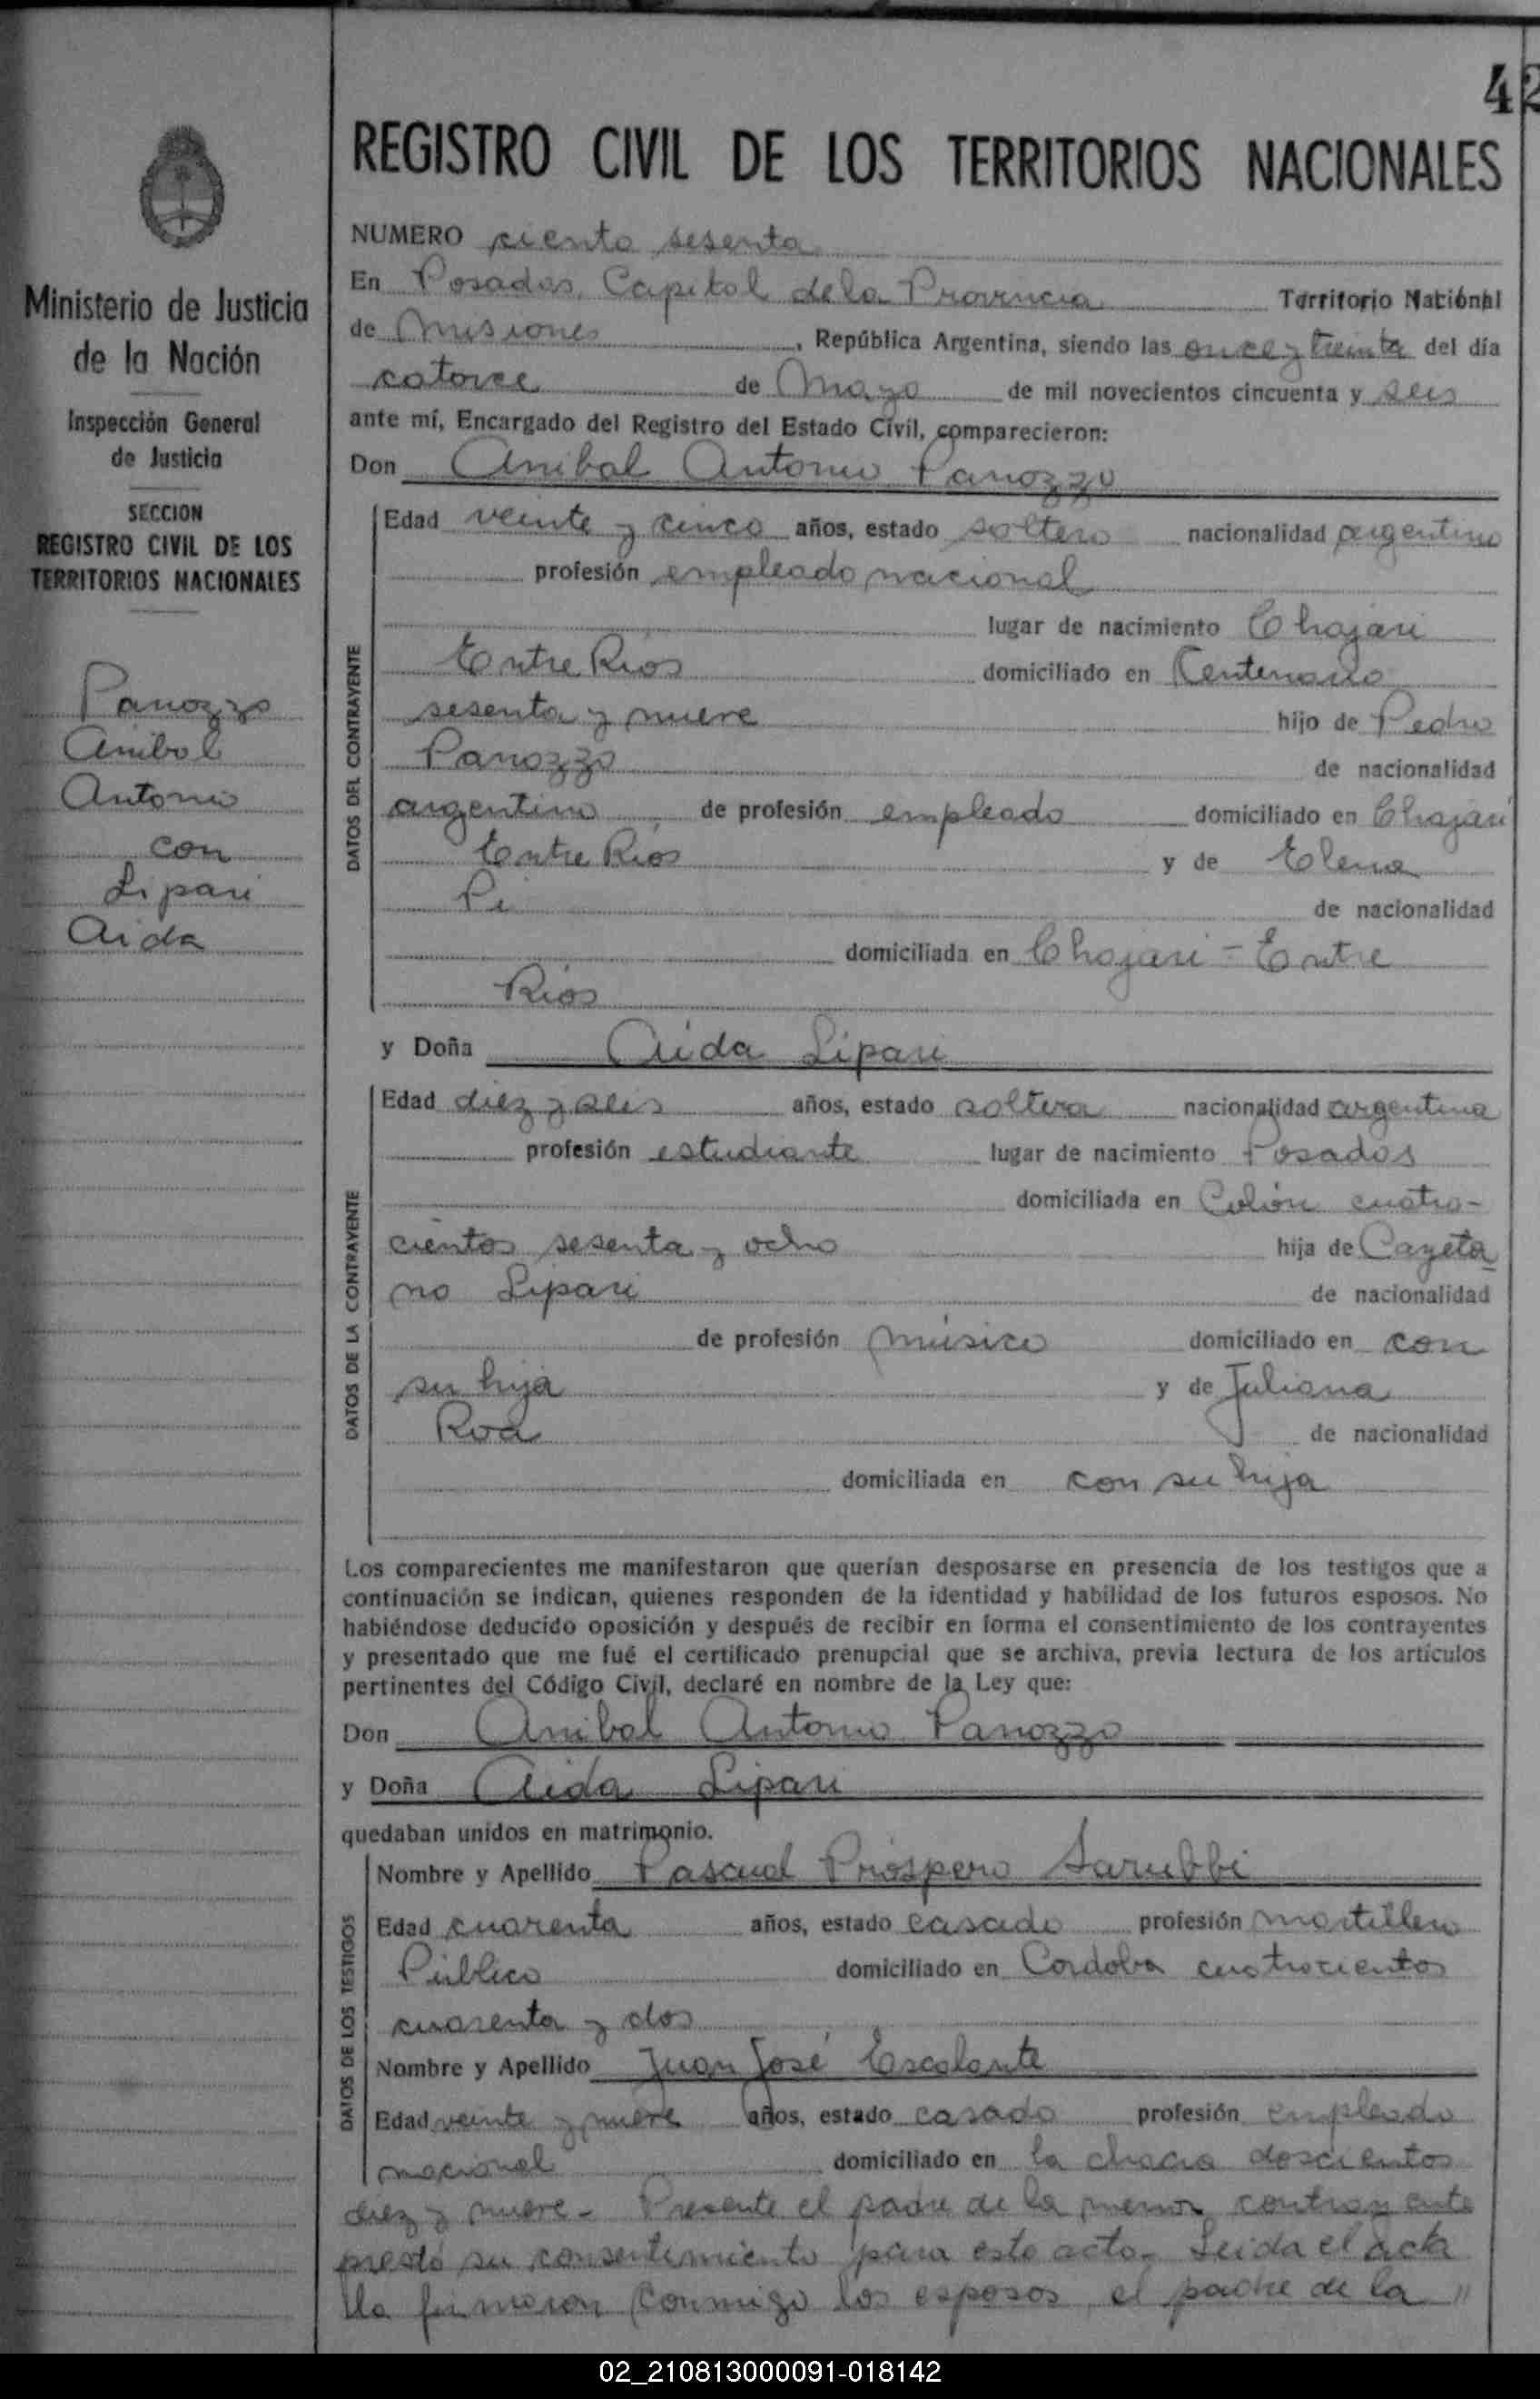 42
REGISTRO CIVIL DE LOS TERRITORIOS NACIONALES
NUMERO ciento sesenta
En Posadas, Capital de la Provincia Territorio Nacional
de Misiones, República Argentina, siendo las once y treinta del día
catorce de Mayo de mil novecientos cincuenta y seis
ante mí, Encargado del Registro del Estado Civil, comparecieron:
Don Anibal Antonio Panozzo
DATOS DEL CONTRAYENTE
Edad veinte y cinco años, estado soltero nacionalidad argentino
profesión empleado nacional
lugar de nacimiento Chajari
Entre Rios domiciliado en Centenario
sesenta y nueve hijo de Pedro
Panozzo de nacionalidad
argentino de profesión empleado domiciliado en Chajari
Entre Rios y de Elena
Pi de nacionalidad
domiciliada en Chajari - Entre
Rios
y Doña Aida Lipari
DATOS DE LA CONTRAYENTE
Edad diez y seis años, estado soltera nacionalidad argentina
profesión estudiante lugar de nacimiento Posadas
domiciliada en Colón cuatro-
cientos sesenta y ocho hija de Cayeta
no Lipari de nacionalidad
de profesión músico domiciliado en con
su hija y de Juliana
Roa de nacionalidad
domiciliada en con su hija
Los comparecientes me manifestaron que querían desposarse en presencia de los testigos que a
continuación se indican, quienes responden de la identidad y habilidad de los futuros esposos. No
habiéndose deducido oposición y después de recibir en forma el consentimiento de los contrayentes
y presentado que me fué el certificado prenupcial que se archiva, previa lectura de los artículos
pertinentes del Código Civil, declaré en nombre de la Ley que:
Don Anibal Antonio Panozzo
y Doña Aida Lipari
quedaban unidos en matrimonio.
DATOS DE LOS TESTIGOS
Nombre y Apellido Pascual Próspero Sarubbi
Edad cuarenta años, estado casado profesión martillero
Público domiciliado en Cordoba cuatrocientos
cuarenta y dos
Nombre y Apellido Juan José Escalante
Edad veinte y nueve años, estado casado profesión empleado
nacional domiciliado en la chacra doscientos
diez y nueve - Presente el padre de la menor contrayente
prestó su consentimiento para este acto. Leida el acta
la firmaron conmigo los esposos, el padre de la "
Ministerio de Justicia
de la Nación
Inspección General
de Justicia
SECCION
REGISTRO CIVIL DE LOS
TERRITORIOS NACIONALES
Panozzo
Anibal
Antonio
con
Lipari
Aida
02_210813000091-018142